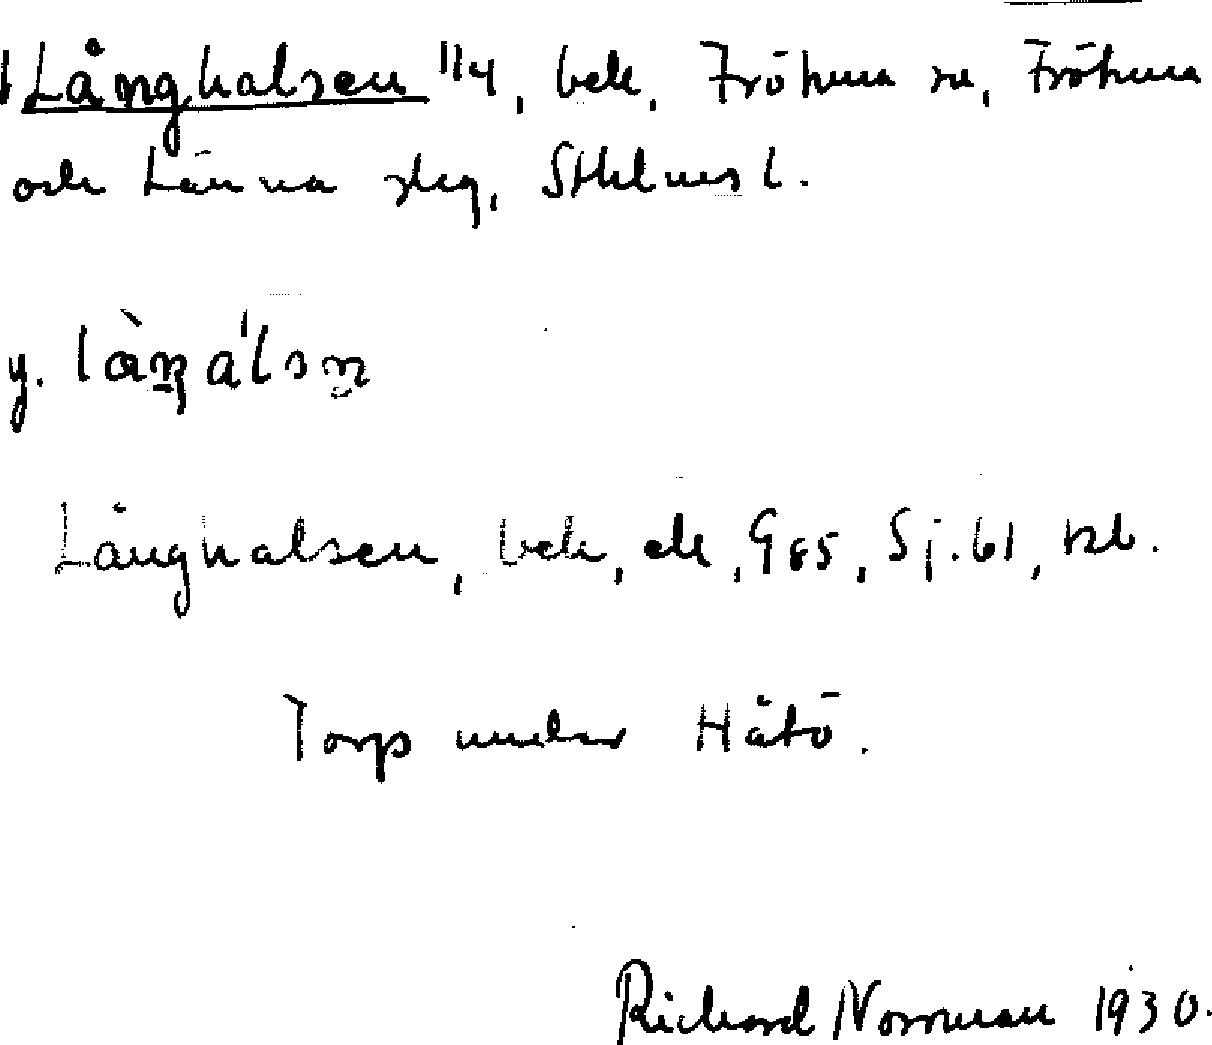 Långhalsen 1/4, beb. Frötuna sn, Frötuna
och Länna skg, Sthlms l.
y. làŋál sn̥
Långhalsen, beb, ek, G85, Sj. 61, kb.
Torp under Håtö.
Richard Norrman 1930.